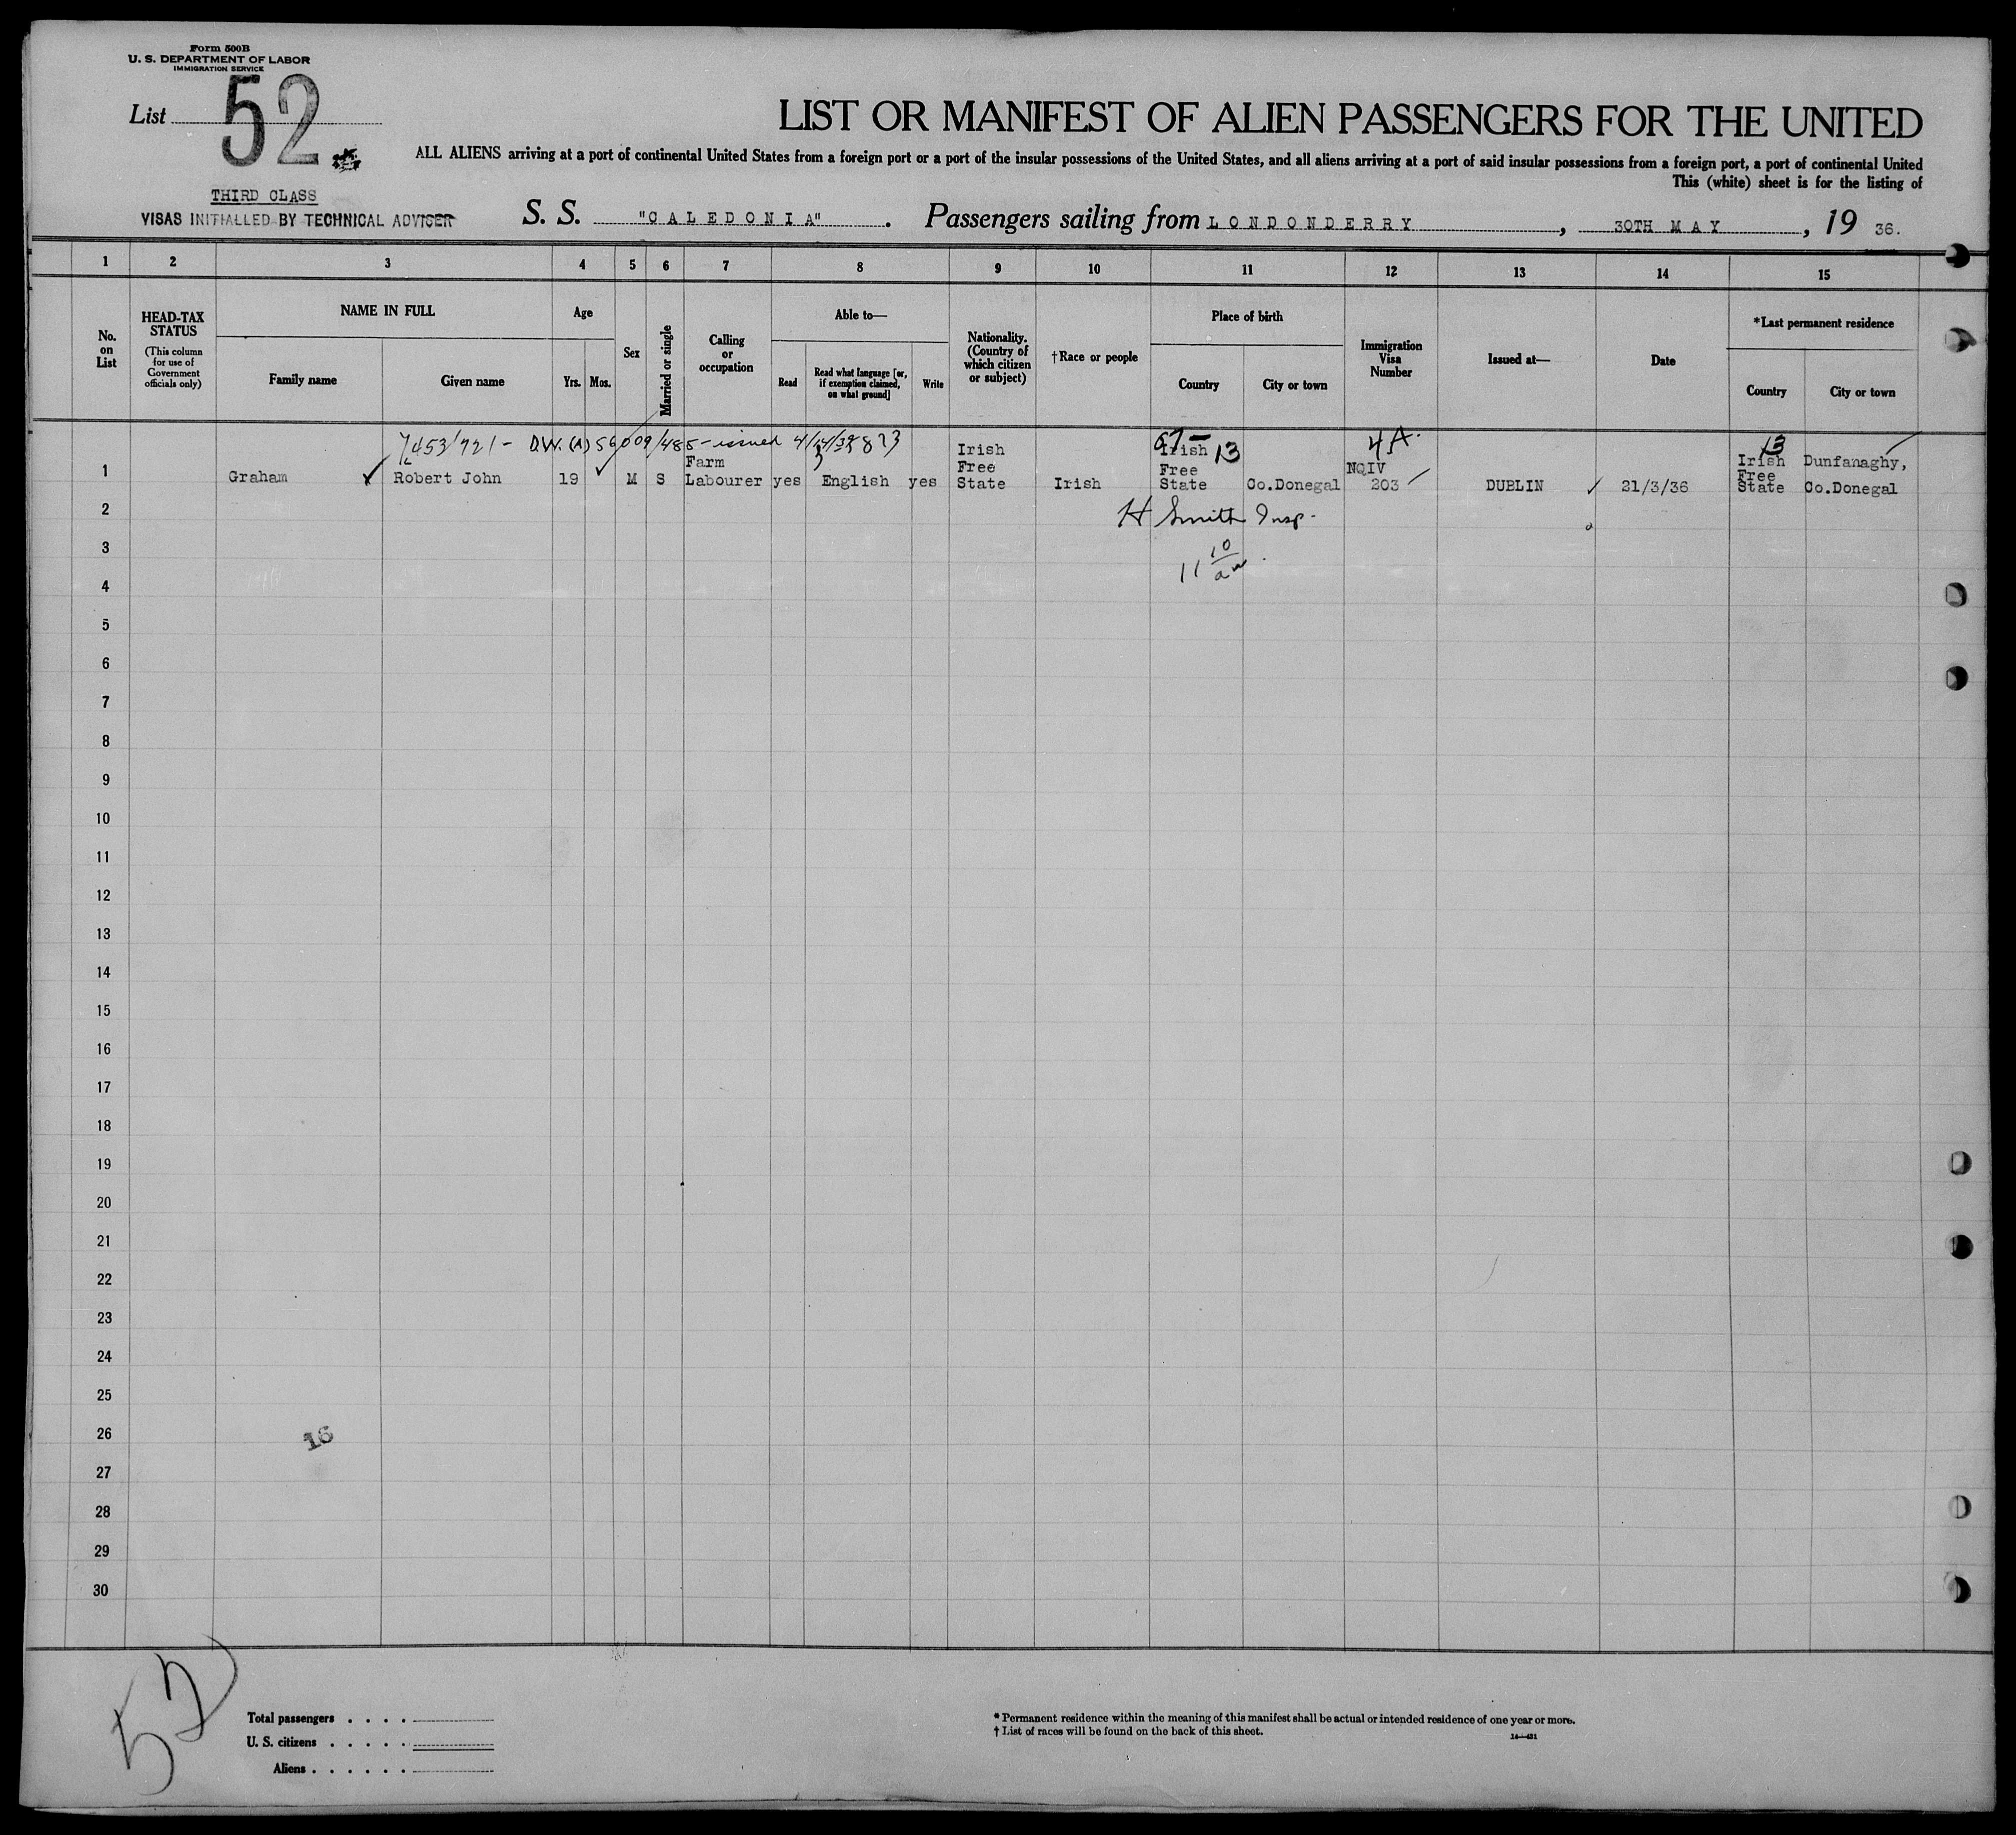 Form 500B
U. S. DEPARTMENT OF LABOR
IMMIGRATION SERVICE
List 52
LIST OR MANIFEST OF ALIEN PASSENGERS FOR THE UNITED
ALL ALIENS arriving at a port of continental United States from a foreign port or a port of the insular possessions of the United States, and all aliens arriving at a port of said insular possessions from a foreign port, a port of continental United
This (white) sheet is for the listing of
THIRD CLASS
VISAS INITIALLED BY TECHNICAL ADVISER
S. S. "CALEDONIA". Passengers sailing from LONDONDERRY, 30TH MAY, 19 36.
1 2 3 4 5 6 7 8 9 10 11 12 13 14 15
No. on List
HEAD-TAX STATUS
(This column for use of Government officials only)
NAME IN FULL
Family name
Given name
Age
Yrs.
Mos.
Sex
Married or single
Calling or occupation
Able to—
Read
Read what language [or, if exemption claimed, on what ground]
Write
Nationality. (Country of which citizen or subject)
†Race or people
Place of birth
Country
City or town
Immigration Visa Number
Issued at—
Date
*Last permanent residence
Country
City or town
D.W. (A) 56009/485 - issued
13
4A.
13
1 Graham Robert John 19 M S Farm Labourer yes English yes Irish Free State Irish Irish Free State Co.Donegal NQIV 203 DUBLIN 21/3/36 Irish Free State Dunfanaghy, Co.Donegal
2
H Smith Insp.
3
11 10/am
4
5
6
7
8
9
10
11
12
13
14
15
16
17
18
19
20
21
22
23
24
25
26
16
27
28
29
30
52
Total passengers . . . .
U. S. citizens . . . . .
Aliens . . . . . .
* Permanent residence within the meaning of this manifest shall be actual or intended residence of one year or more.
† List of races will be found on the back of this sheet.